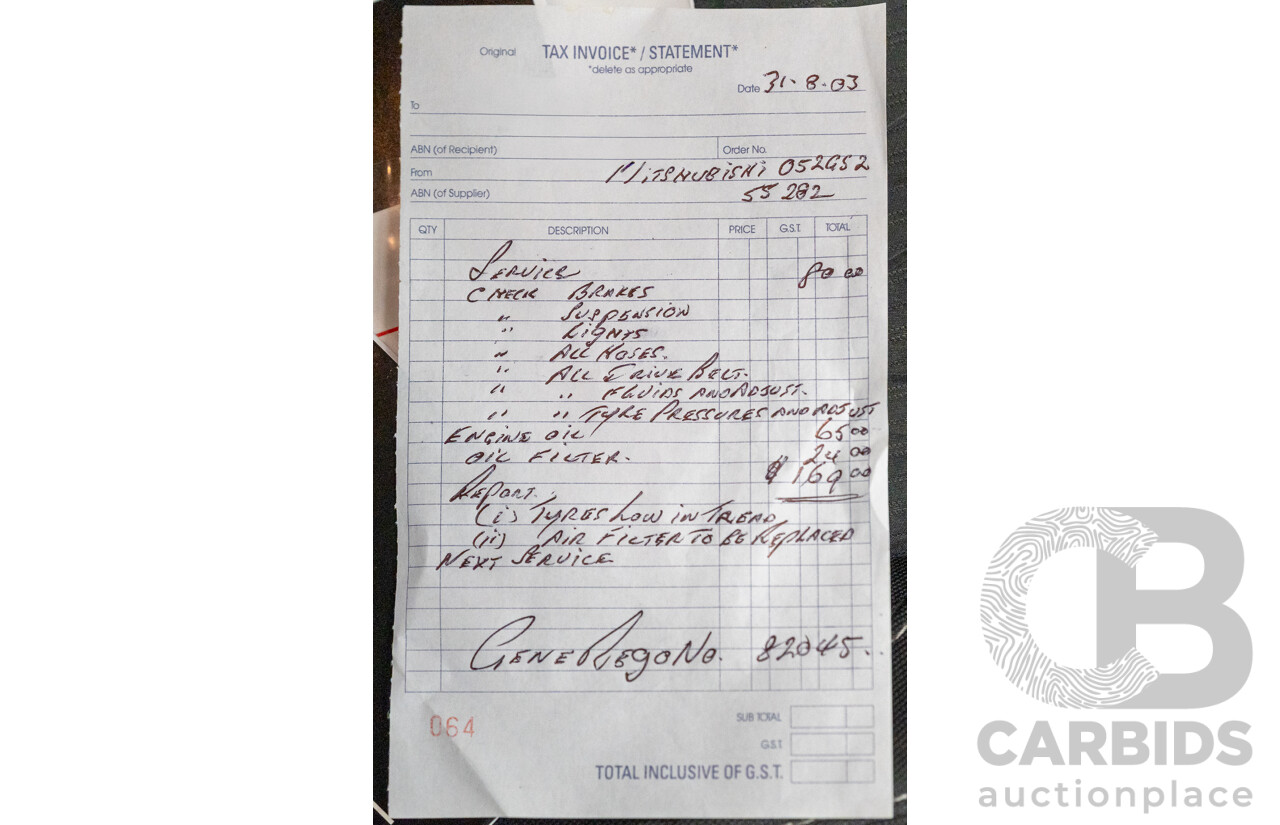 Original TAX INVOICE* / STATEMENT*
*delete as appropriate
Date 31-8-03
To
ABN (of Recipient) Order No.
From MITSHUBISHI 052GS2
ABN (of Supplier) 55 282
QTY DESCRIPTION PRICE G.S.T. TOTAL
SERVICE 80 00
CHECK BRAKES
" SUSPENSION
" LIGHTS
" ALL HOSES.
" ALL DRIVE BELT.
" " FLUIDS AND ADJUST.
" " TYRE PRESSURES AND ADJUST
ENGINE OIL 65 00
OIL FILTER. 24 00
$ 169 00
REPORT.
(i) TYRES LOW IN TREAD
(ii) AIR FILTER TO BE REPLACED
NEXT SERVICE
GENE REGO NO. 82045.
064
SUB TOTAL
G.S.T.
TOTAL INCLUSIVE OF G.S.T.
CB
CARBIDS
auctionplace